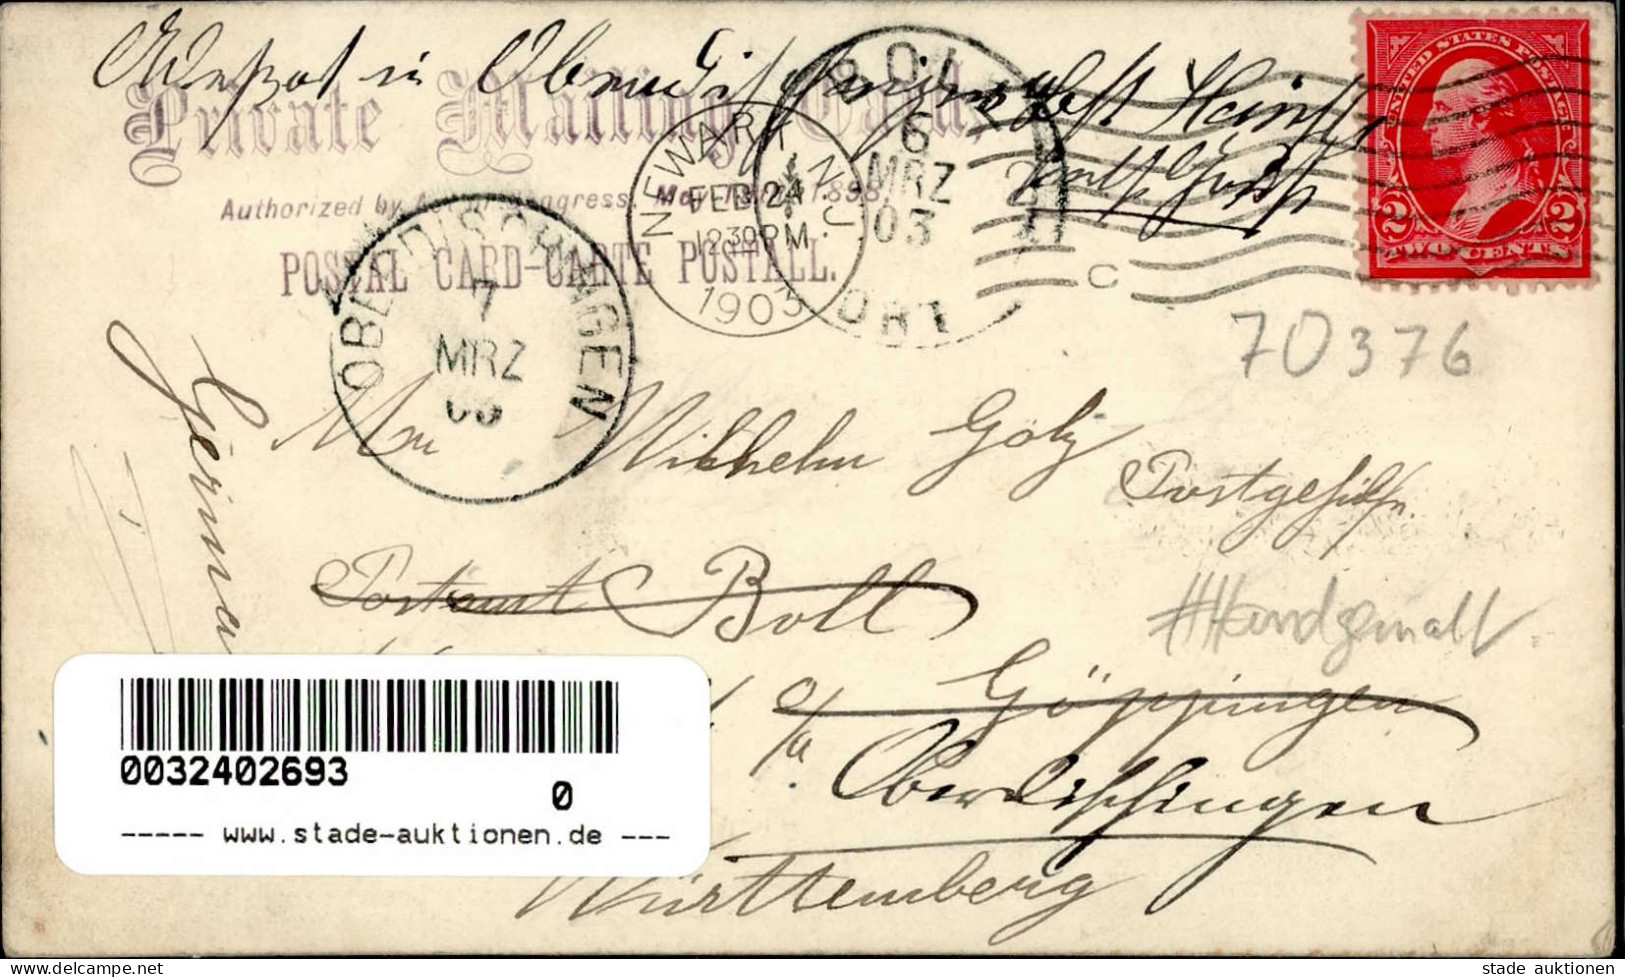 Private Mailing Card
Authorized by Act of Congress. May 19th, 1898
POSTAL CARD-CARTE POSTALL.
NEWARK N.J.
FEB 24
12 30 PM
1903
BOLL
6
MRZ
03
ORT
C
OBERDISCHINGEN
7
MRZ
03
UNITED STATES POSTAGE
2 2
TWO CENTS
70376
Wilhelm Götz
Postgehilfe
Postamt Boll
Handgemalt
o/a Göppingen
Oberdischingen
Württemberg
German
0032402693
0
----- www.stade-auktionen.de ---
stade_auktionen
www.delcampe.net